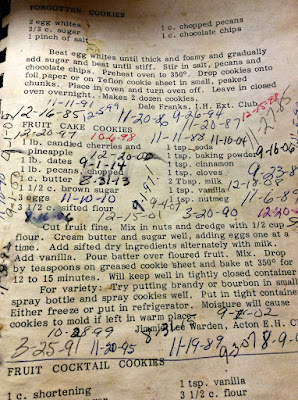 FORGOTTEN COOKIES
2 egg whites 1 c. chopped pecans
2/3 c. sugar 1 c. chocolate chips
1 pinch of salt
Beat egg whites until thick and foamy and gradually
add sugar and beat until stiff. Stir in salt, pecans and
chocolate chips. Preheat oven to 350°. Drop cookies onto
foil paper or on Teflon cookie sheet in small, peaked
chunks. Place in oven and turn oven off. Leave in closed
oven overnight. Makes 2 dozen cookies.
11-11-91 Dale Franks, I.H. Ext. Club
12-16-85 12-5-99 11-20-86 9-26-94 12-25-88
FRUIT CAKE COOKIES 11-20-87
12-20-97 10-6-98 11-11-88 11-10-04
1 lb. candied cherries and 1 tsp. soda
pineapple 12-20-00 1 tsp. baking powder 9-10-06
1 lb. dates 9-1-14 1 tsp. cinnamon
1 lb. pecans, chopped 1 tsp. cloves
1 c. butter 8-31-93 2 Tbsp. milk
1 1/2 c. brown sugar 1 tsp. vanilla 12-18-88
3 eggs 11-10-10 1 tsp. nutmeg
3 1/2 c. sifted flour 9-4-07
2-15-01 3-20-90
Cut fruit fine. Mix in nuts and dredge with 1/2 cup
flour. Cream butter and sugar well, adding eggs one at a
time. Add sifted dry ingredients alternately with milk.
Add vanilla. Pour batter over floured fruit. Mix. Drop
by teaspoons on greased cookie sheet and bake at 350° for
12 to 15 minutes. Will keep well in tightly closed container
For variety: Try putting brandy or bourbon in small
spray bottle and spray cookies well. Put in tight container
Either freeze or put in refrigerator. Moisture will cause
cookies to mold if left in warm place. 9-11-02
10-28-99 Jimmie Lee Warden, Acton E.H. C
3-25-91 11-20-95 11-19-89
FRUIT COCKTAIL COOKIES
1 c. shortening 1 tsp. vanilla
3 1/2 c. flour